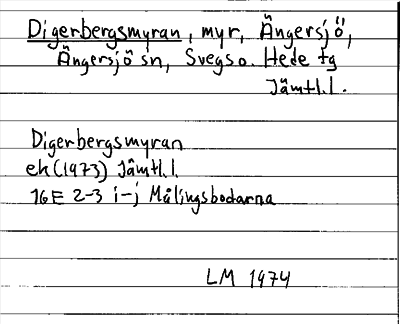 Digerbergsmyran, myr, Ängersjö,
Ängersjö sn, Svegs o. Hede tg
Jämtl.l.
Digerbergsmyran
ek (1973) Jämtl.l.
16E 2-3 i-j Målingsbodarna
LM 1974